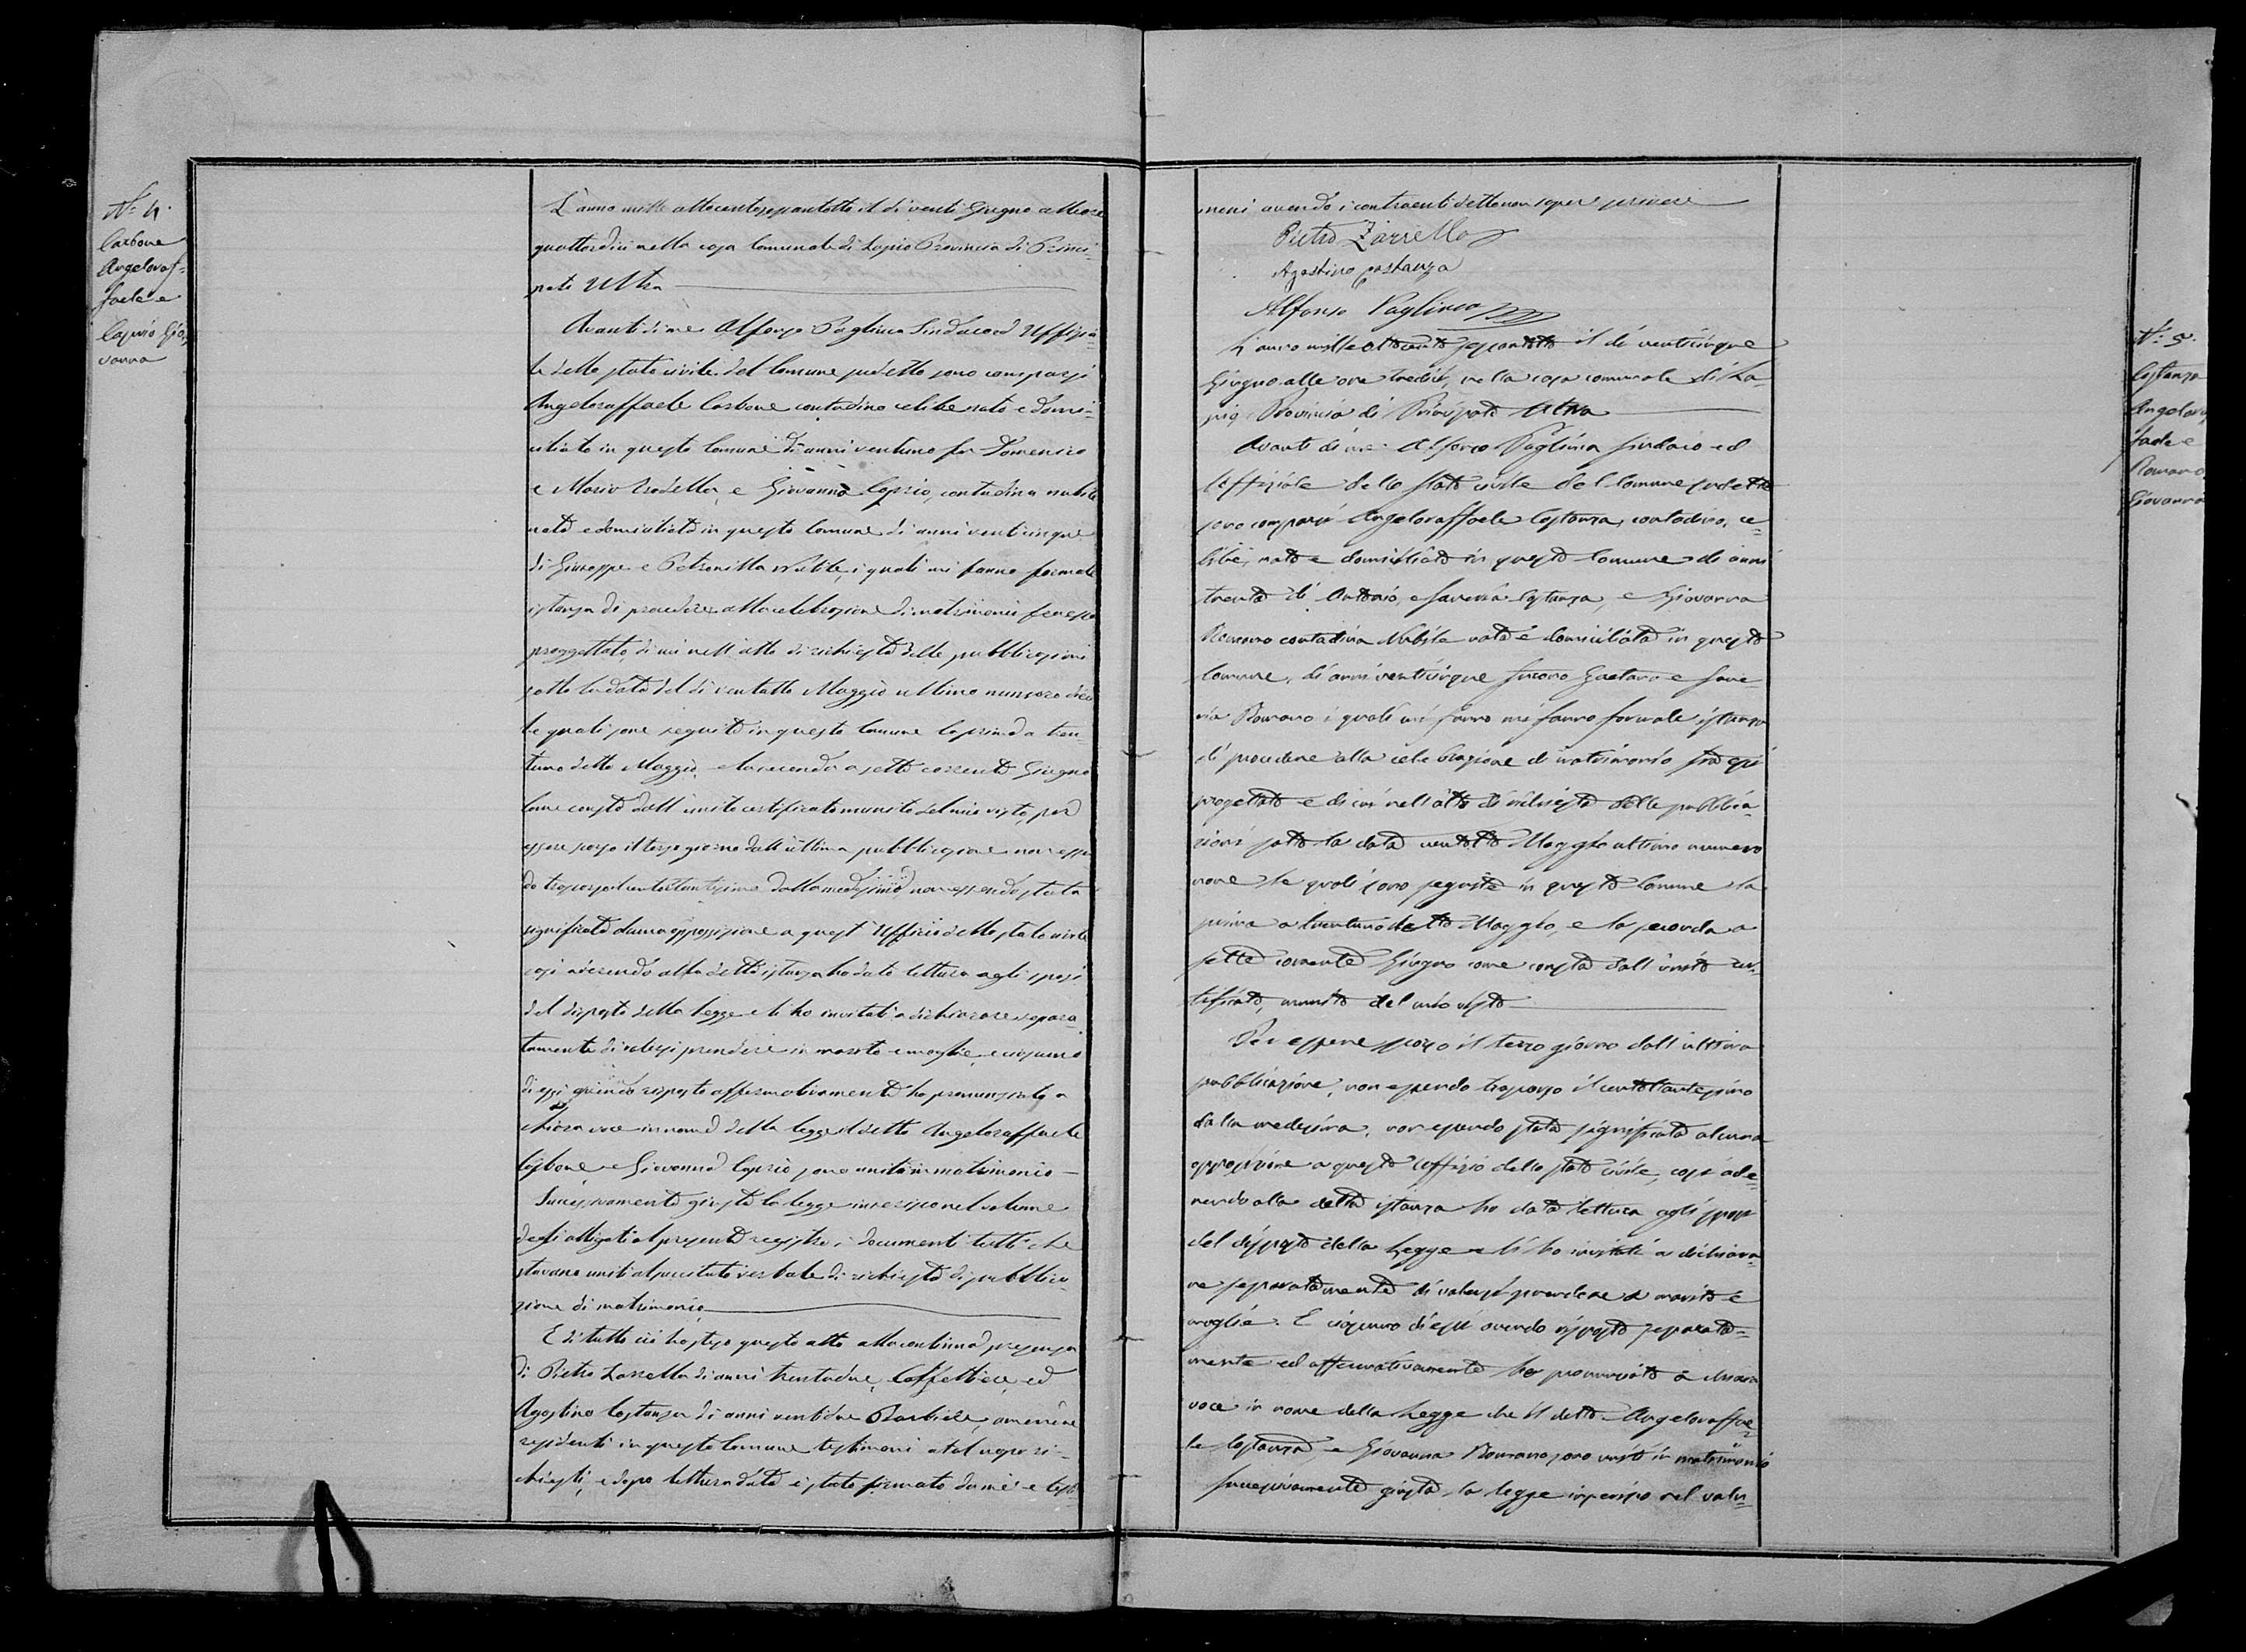 N.° 4.
Carbone
Angeloraf=
faele e
Caprio Gio,
vanna
L'anno mille ottocentosessantotto il dì venti Giugno alle ore
quattordici nella casa Comunale di Lapio Provincia di Princi-
pato Ultra
Avanti di me Alfonso Paglinca Sindaco ed Uffizia-
le dello stato civile del Comune sudetto sono comparsi
Angeloraffaele Carbone contadino celibe nato e domi-
ciliato in questo Comune di anni ventuno fu Domenico
e Maria, e Giovanna Caprio, contadina nubile
nata e domiciliata in questo Comune di anni venticinque
di Giuseppe e Petronilla, i quali mi fanno formale
istanza di procedere alla celebrazione di matrimonio fra essi
proggettato, di cui nell'atto di richiesta delle pubblicazioni
sotto la data del dì ventotto Maggio ultimo numero
le quali sono seguite in questo Comune la prima a tren-
tuno detto Maggio, e la seconda a sette corrente Giugno
come consta dall'unito certificato munito del mio visto, per
essere scorso il terzo giorno dall'ultima pubblicazione non essen
do trascorso il centottantesimo dalla medesima, non essendo stata
significata alcuna opposizione a quest'Ufficio dello stato civile
così aderendo alla detta istanza ho dato lettura agli sposi
del disposto della legge e li ho invitati a dichiarare separa-
tamente di volersi prendere in marito e moglie, e ciascuno
di essi risposto affermativamente ho pronunziato a
chiara voce in nome della legge il detto Angeloraffaele
Carbone e Giovanna Caprio sono uniti in matrimonio –
Successivamente giusta la legge inserisco nel volume
degli alligati al presente registro, i documenti tutti che
stavano uniti al precitato verbale di richiesta di pubblica-
zione di matrimonio
E di tutto ciò ho steso questo atto alla continua presenza
di Pietro Zarrella di anni trentadue, Caffettiere, ed
Agostino Costanza di anni ventidue Barbiere, amenduni
residenti in questo Comune testimoni a tal uopo ri-
chiesti, e dopo lettura data è stato firmato da me e testi-
moni avendo i contraenti detto non saper scrivere
Pietro Zarrella
Agostino costanza
Alfonso Paglinca
N.° 5.
Costanza
Angeloraf
faele e
Romano
Giovanna
L'anno mille ottocento sessantotto il dì venticinque
Giugno alle ore tredici, nella casa comunale di La-
pio Provincia di Principato Ultra
Avanti di me Alfonso Paglinca Sindaco ed
Uffiziale dello Stato civile del Comune sudetto
sono comparsi Angeloraffaele Costanza, contadino, ce-
libe, nato e domiciliato in questo Comune di anni
trenta di Antonio, e Saveria Costanza, e Giovanna
Romano contadina Nubile nata e domiciliata in questo
Comune, di anni venticinque furono Gaetano e Save-
ria Romano i quali mi fanno mi fanno formale istanza
di procedere alla celebrazione di matrimonio fra essi
progettato e di cui nell'atto di richiesta delle pubblica-
zioni sotto la data ventotto Maggio ultimo numero
nove le quali sono seguite in questo Comune la
prima a trentuno detto Maggio, e la seconda a
sette corrente Giugno come consta dall'unito cer-
tificato, munito del mio visto
Per essere scorso il terzo giorno dall'ultima
pubblicazione, non essendo trascorso il centottantesimo
dalla medesima, non essendo stata significata alcuna
opposizione a questo Uffizio dello stato civile, così ade-
rendo alla detta istanza ho data lettura agli sposi
del disposto della Legge e li ho invitati a dichiara-
re separatamente di volersi prendere a marito e
moglie. E ciascuno di essi avendo risposto separata=
mente ed affermativamente ho pronunziato a chiara
voce in nome della Legge che il detto Angeloraffae-
le Costanza, e Giovanna Romano sono uniti in matrimonio
Successivamente giusta la legge inserisco nel volu-